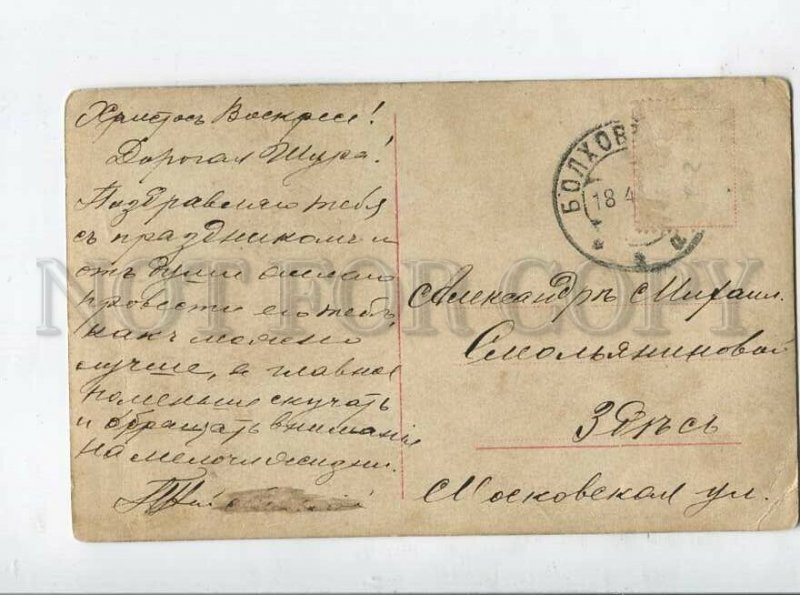 Христосъ Воскресе!
Дорогая Шура!
Поздравляю тебя
съ праздникомъ и
отъ души желаю
провести его тебѣ,
какъ можно
лучше, а главное
поменьше скучать
и обращать вниманіе
на мелочи жизни.
БОЛХОВ
18 4
Александрѣ Михаил.
Смольяниновой
Здѣсь
Московская ул.
NOT FOR COPY